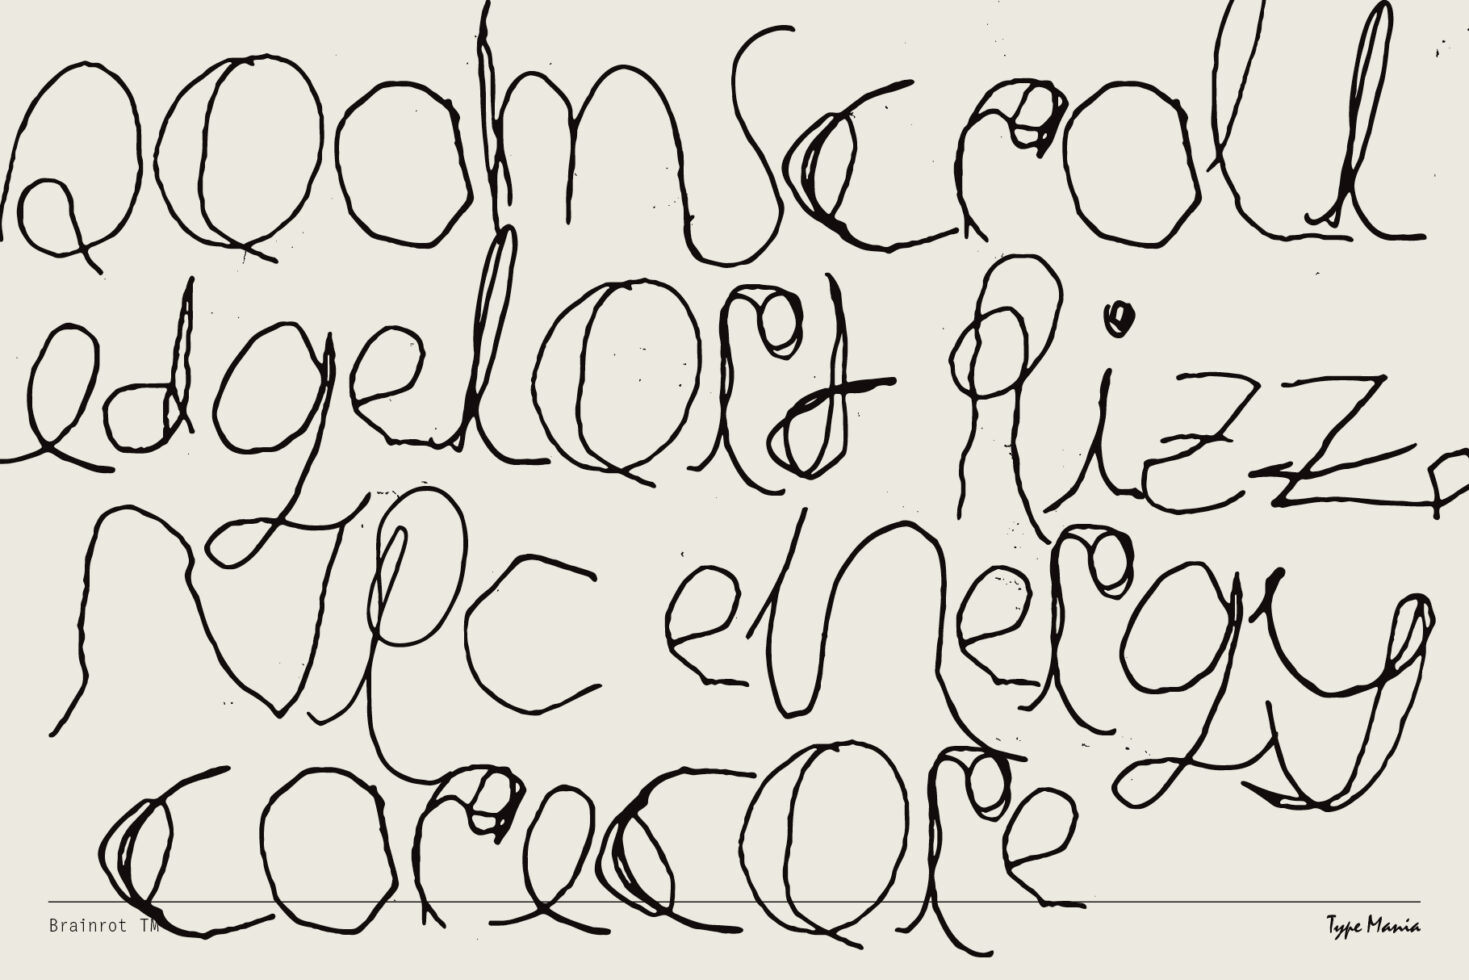 Doomscroll
edgelord rizz,
Npc energy
corecore
Brainrot TM
Type Mania